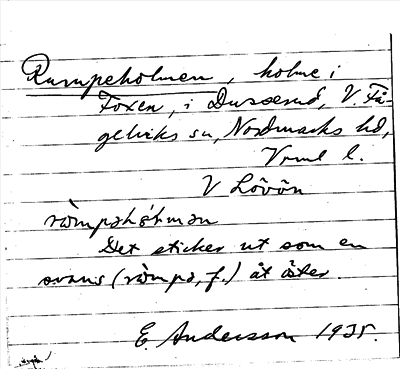 Rumpeholmen, holme i
Foxen, i Dusserud, V. Få-
gelviks sn, Nordmarks hd,
Vrml l.
V Lövön
römpəhɷ̀lmən
Det sticker ut som en
svans (römpə, f.) åt öster.
E. Andersson 1935.